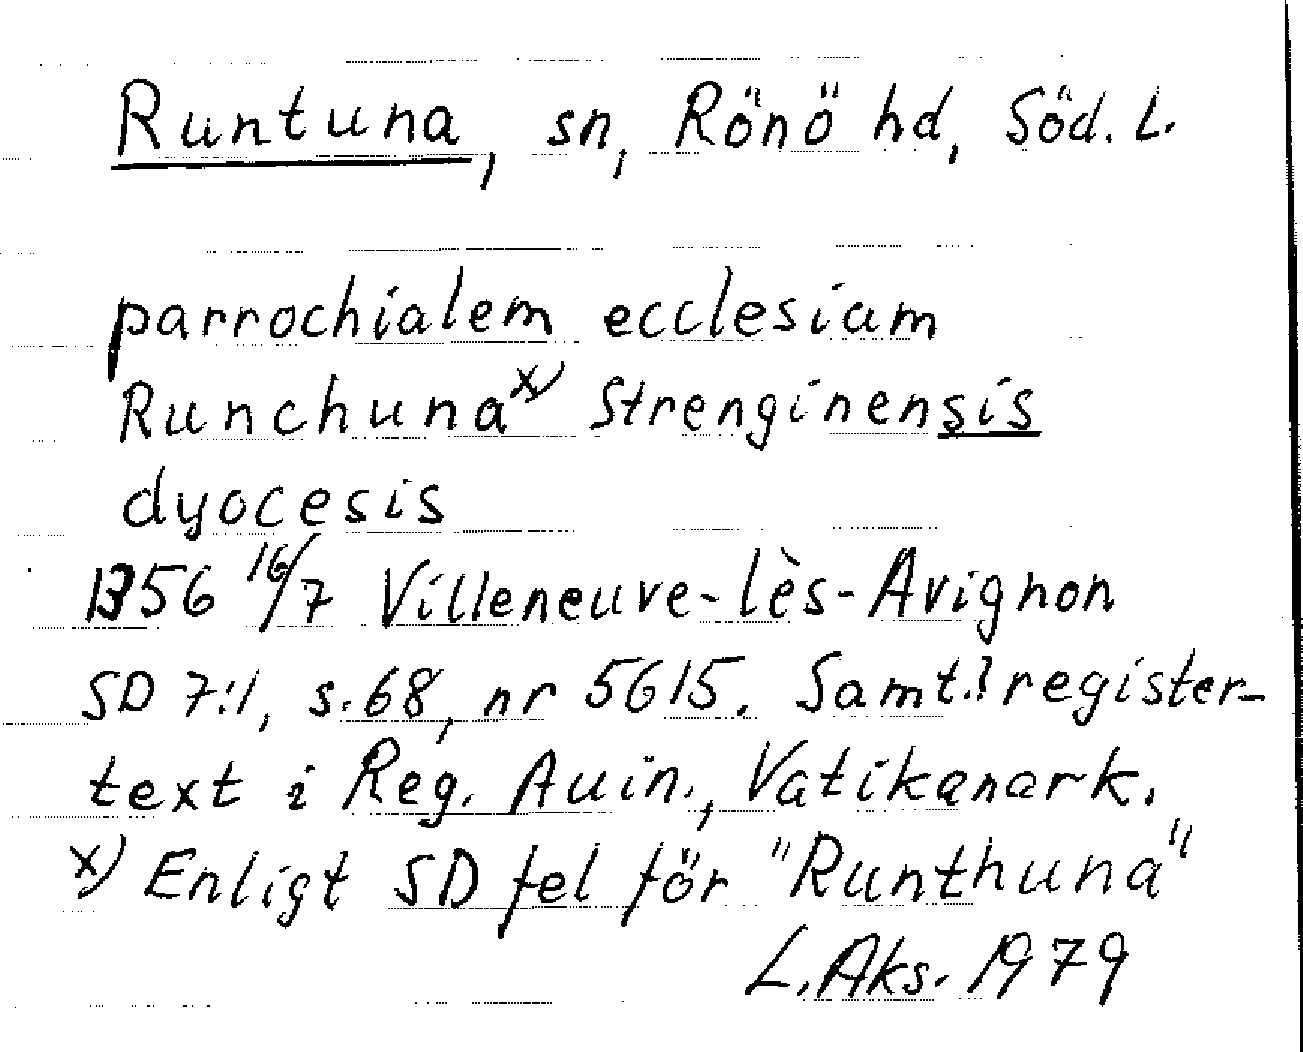 Runtuna, sn, Rönö hd, Söd. L.
parrochialem ecclesiam
Runchuna x) Strenginensis
dyocesis
1356 16/7 Villeneuve-lès-Avignon
SD 7:1, s. 68, nr 5615. Samt.? register-
text i Reg. Auin., Vatikanark.
x) Enligt SD fel för "Runthuna"
L. Aks. 1979